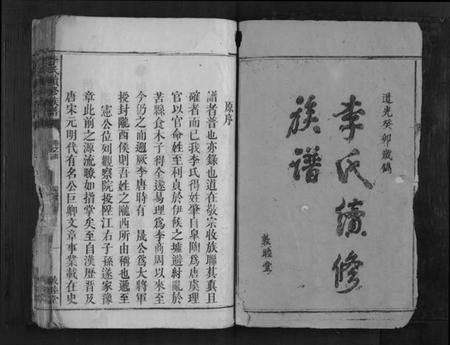 道光癸卯歲鐫
李氏續修
族譜
敦睦堂
原序
譜者普也亦錄也道在敬宗收族聯其真且
確者而已我李氏得姓肇自臯陶為唐虞理
官以官命姓至利貞於伊侯之墟避紂亂於
苦縣食木子得全遂易理為李商周以來至
今仍之而逥厥李唐時有 晟公為大將軍
授封隴西侯則吾姓之隴西所由稱也遞至
憲公位列觀察院按陞江右子孫遂家豫
章此前之源流瞭如指掌矣至自漢歷晉及
唐宋元明代有名公巨卿文章事業載在史
敦睦堂